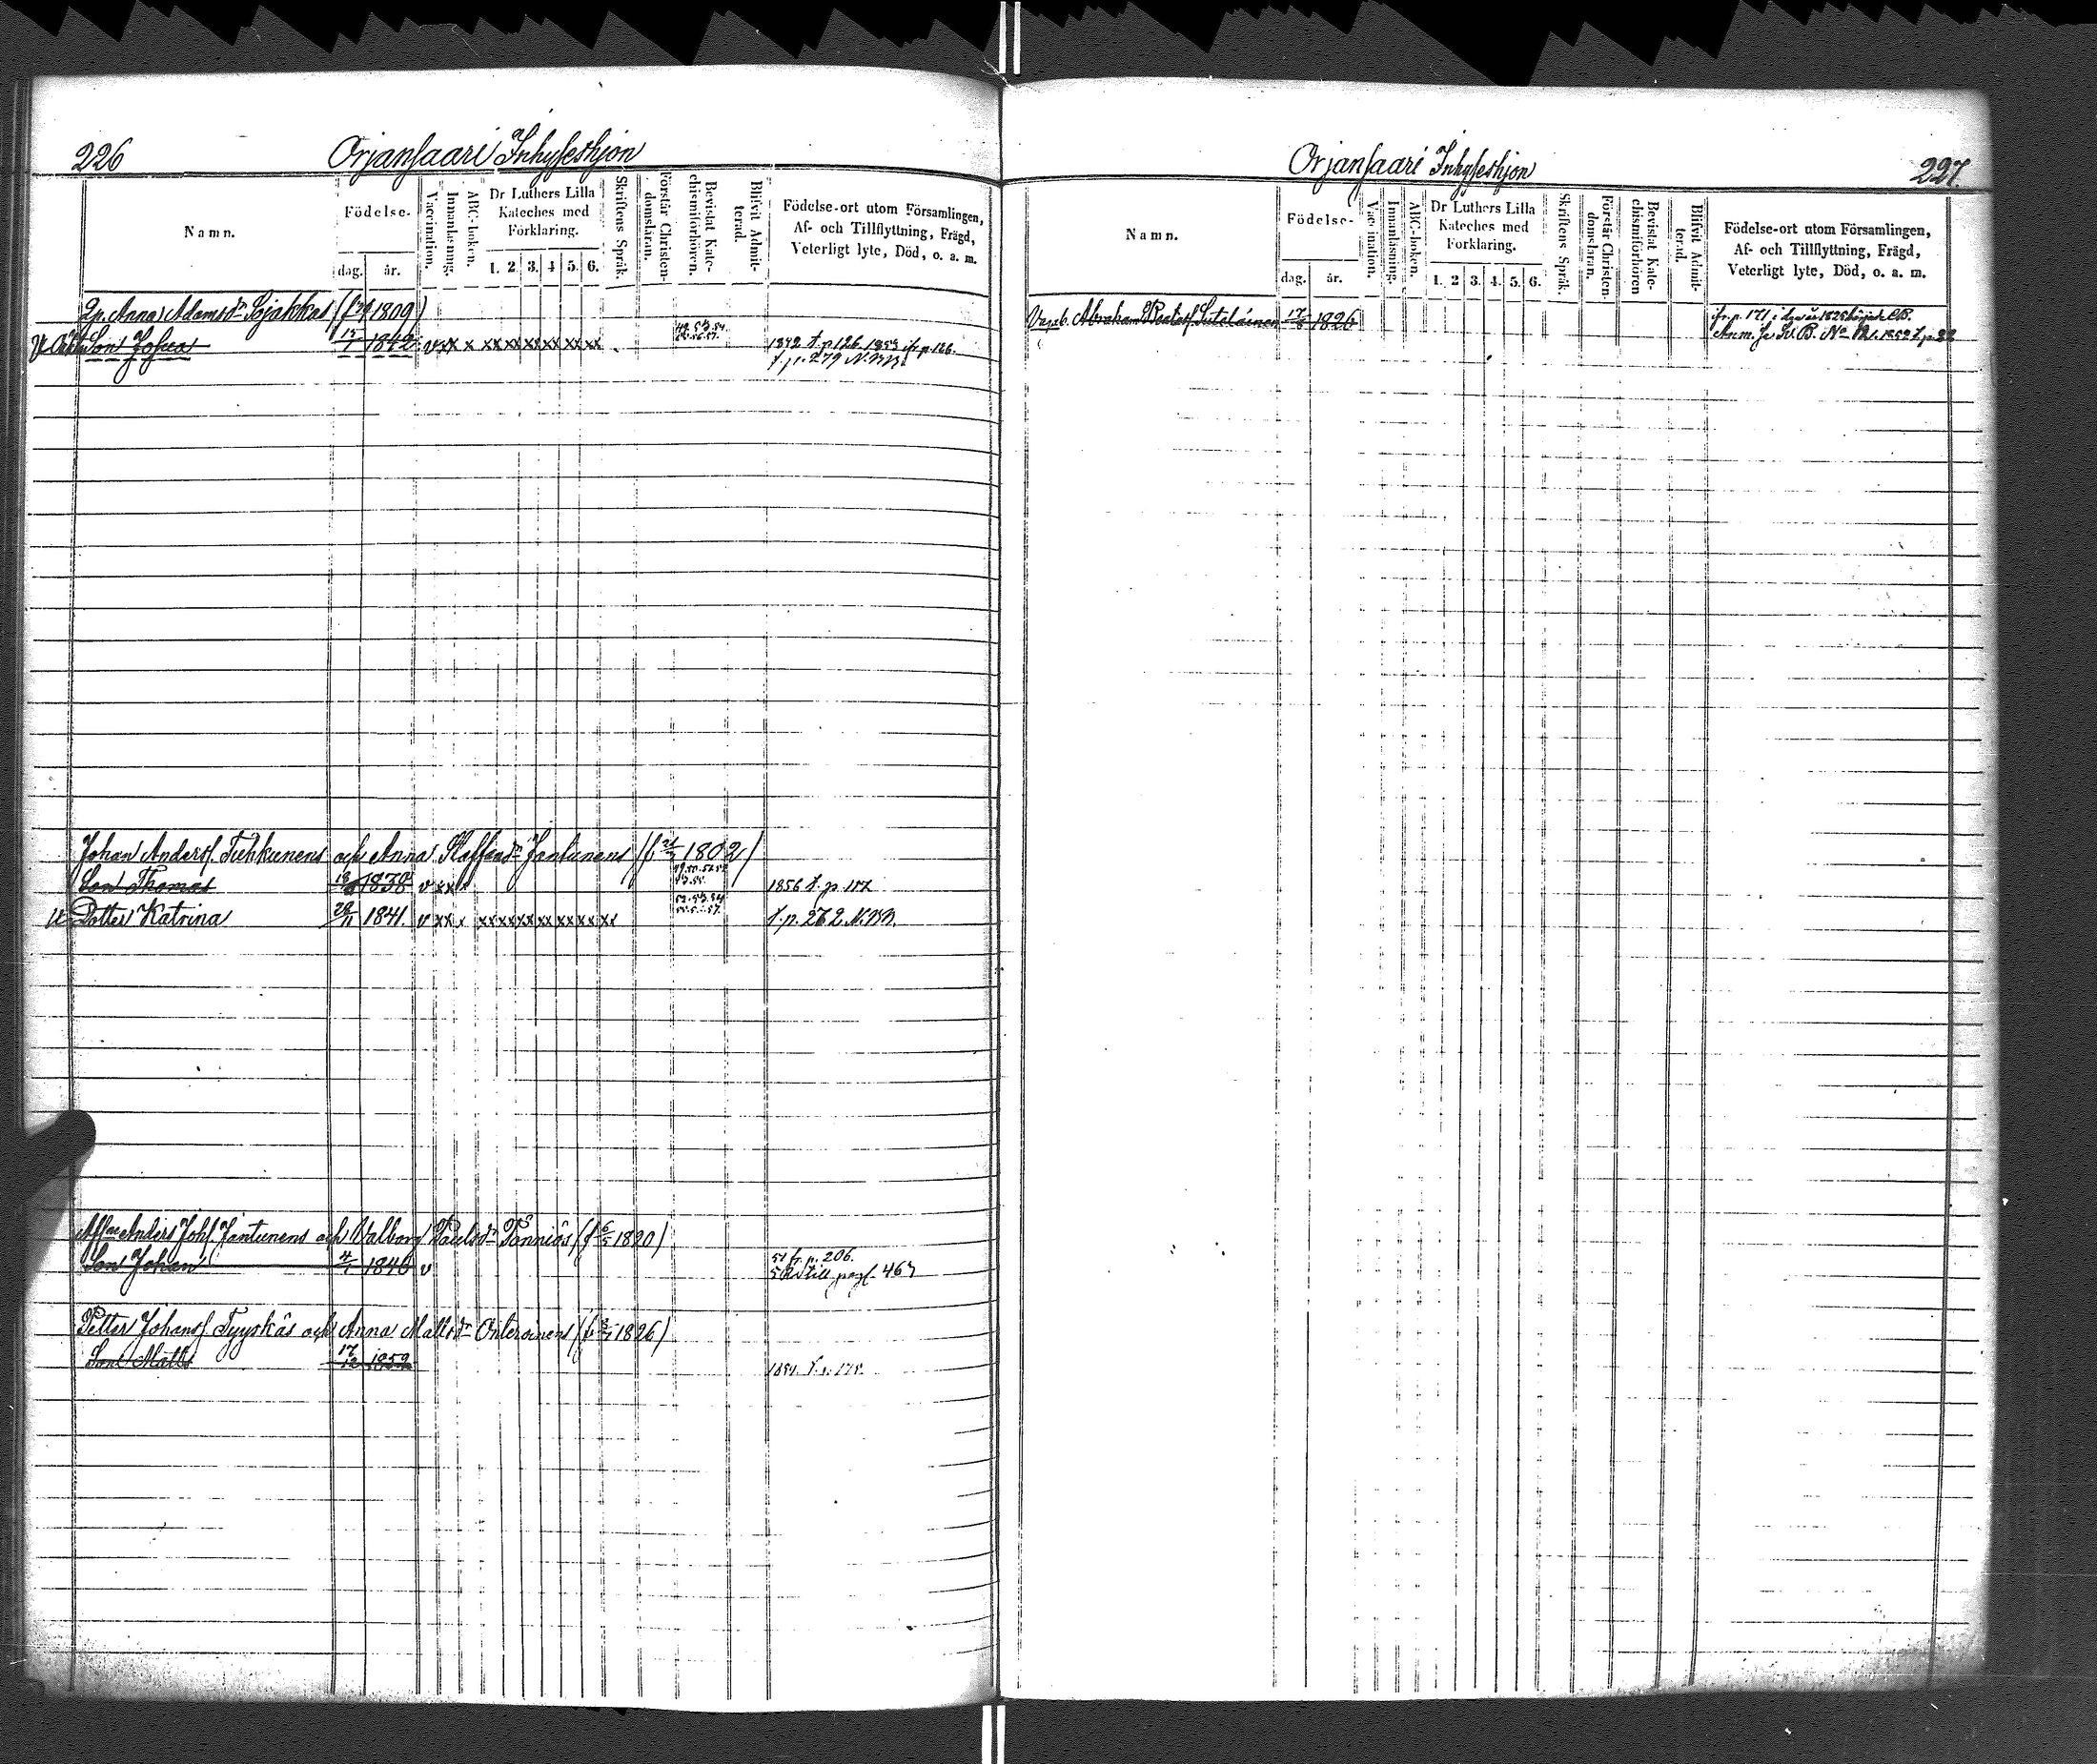 226 Orjansaari Inhyseshjon
Namn.
Födelse-
dag. år.
Vaccination.
Innanläsning.
ABC-boken.
Dr Luthers Lilla
Kateches med
Förklaring.
1. 2. 3. 4 5. 6.
Skriftens Språk.
Förstår Christen-
domsläran.
Bevistat Kate-
chismiförhören.
Blifvit Admit-
terad.
Födelse-ort utom Församlingen,
Af- och Tillflyttning, Frägd,
Veterligt lyte, Död, o. a. m.
Anna Adamsdr Sojakkas 1809)
Son Johan 15/1 1842 v xx x xx xx xx xx xx xx 1852 t.p. 126. 1853 fr. p. 126.
t.p. 279 N.
Johan Anderss. Tuhkunens och Anna Staffansdr Jantunens 1802)
Son Thomas 1838 v xx 1856 t. p.
Dotter Katrina 28/11 1841. v xx x xx xx xx xx xx xx xx t.p. 262 N.
Anders Johs. Jantunens och Valborg Paulsdr 1820)
Son Johan 4/1 1840 v 51 fr. p. 206.
till pag. 467
Petter Johanss. Tyyskäs och Anna Mattsdr 1826)
Son Matts 17/12 1852
Orjansaari Inhyseshjon 227.
Namn.
Födelse-
dag. år.
Vaccination.
Innanläsning.
ABC-boken.
Dr Luthers Lilla
Kateches med
Förklaring.
1. 2 3. 4. 5. 6.
Skriftens Språk.
Förstår Christen-
domsläran.
Bevistat Kate-
chismiförhören
Blifvit Admit-
terad.
Födelse-ort utom Församlingen,
Af- och Tillflyttning, Frägd,
Veterligt lyte, Död, o. a. m.
Abraham Suteläinen 17/8 1826 fr. p. 171 i
Anm. 1852 t.p.